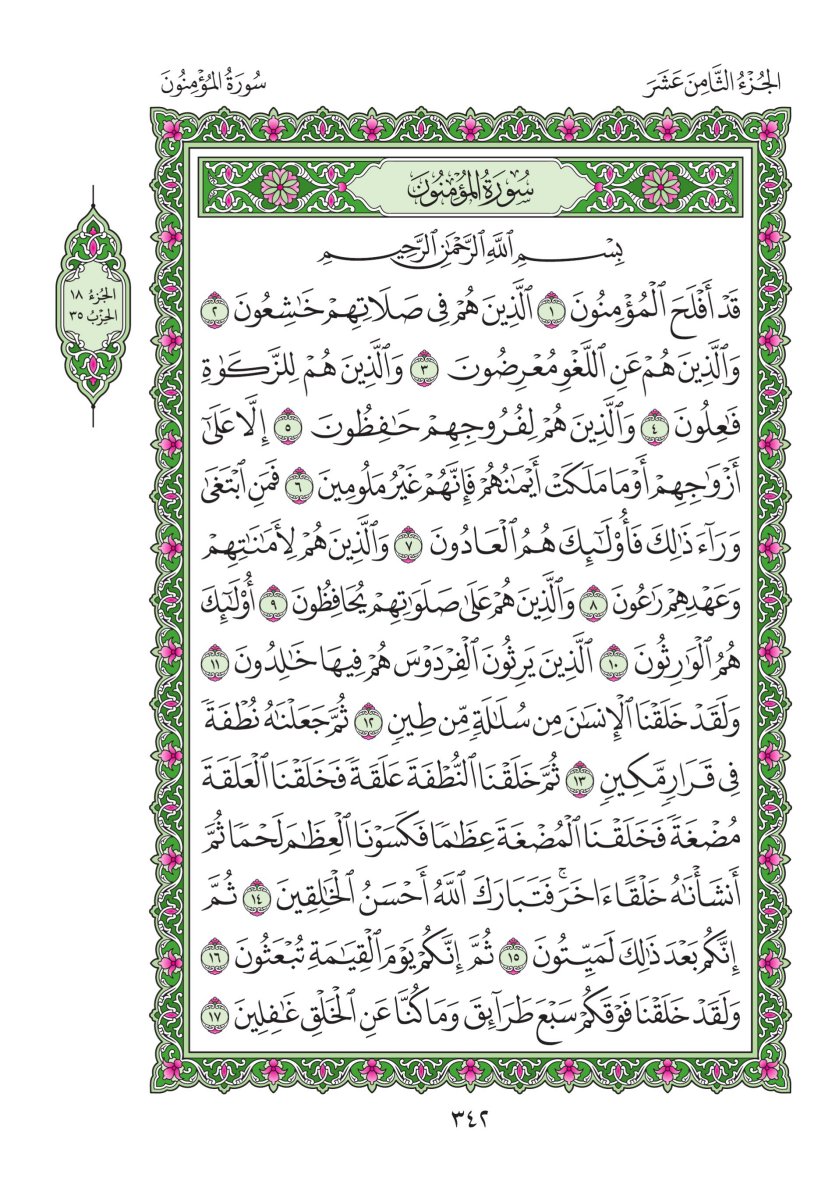 الجُزْءُ الثَّامِنَ عَشَرَ
سُورَةُ المُؤْمِنُونَ
سُورَةُ المُؤْمِنُونَ
الجُزءُ ١٨
الحِزْبُ ٣٥
بِسْمِ ٱللَّهِ ٱلرَّحْمَٰنِ ٱلرَّحِيمِ
قَدْ أَفْلَحَ ٱلْمُؤْمِنُونَ ١ ٱلَّذِينَ هُمْ فِي صَلَاتِهِمْ خَٰشِعُونَ ٢
وَٱلَّذِينَ هُمْ عَنِ ٱللَّغْوِ مُعْرِضُونَ ٣ وَٱلَّذِينَ هُمْ لِلزَّكَوٰةِ
فَٰعِلُونَ ٤ وَٱلَّذِينَ هُمْ لِفُرُوجِهِمْ حَٰفِظُونَ ٥ إِلَّا عَلَىٰٓ
أَزْوَٰجِهِمْ أَوْ مَا مَلَكَتْ أَيْمَٰنُهُمْ فَإِنَّهُمْ غَيْرُ مَلُومِينَ ٦ فَمَنِ ٱبْتَغَىٰ
وَرَآءَ ذَٰلِكَ فَأُو۟لَٰٓئِكَ هُمُ ٱلْعَادُونَ ٧ وَٱلَّذِينَ هُمْ لِأَمَٰنَٰتِهِمْ
وَعَهْدِهِمْ رَٰعُونَ ٨ وَٱلَّذِينَ هُمْ عَلَىٰ صَلَوَٰتِهِمْ يُحَافِظُونَ ٩ أُو۟لَٰٓئِكَ
هُمُ ٱلْوَٰرِثُونَ ١٠ ٱلَّذِينَ يَرِثُونَ ٱلْفِرْدَوْسَ هُمْ فِيهَا خَٰلِدُونَ ١١
وَلَقَدْ خَلَقْنَا ٱلْإِنسَٰنَ مِن سُلَٰلَةٍ مِّن طِينٍ ١٢ ثُمَّ جَعَلْنَٰهُ نُطْفَةً
فِي قَرَارٍ مَّكِينٍ ١٣ ثُمَّ خَلَقْنَا ٱلنُّطْفَةَ عَلَقَةً فَخَلَقْنَا ٱلْعَلَقَةَ
مُضْغَةً فَخَلَقْنَا ٱلْمُضْغَةَ عِظَٰمًا فَكَسَوْنَا ٱلْعِظَٰمَ لَحْمًا ثُمَّ
أَنشَأْنَٰهُ خَلْقًا ءَاخَرَۚ فَتَبَارَكَ ٱللَّهُ أَحْسَنُ ٱلْخَٰلِقِينَ ١٤ ثُمَّ
إِنَّكُم بَعْدَ ذَٰلِكَ لَمَيِّتُونَ ١٥ ثُمَّ إِنَّكُمْ يَوْمَ ٱلْقِيَٰمَةِ تُبْعَثُونَ ١٦
وَلَقَدْ خَلَقْنَا فَوْقَكُمْ سَبْعَ طَرَآئِقَ وَمَا كُنَّا عَنِ ٱلْخَلْقِ غَٰفِلِينَ ١٧
٣٤٢